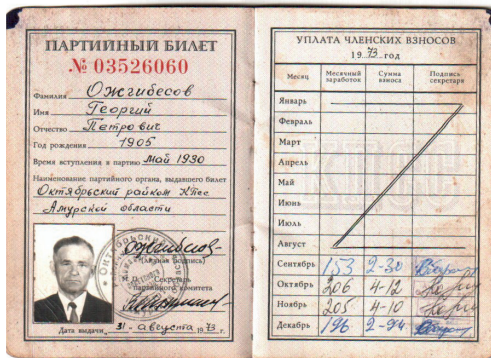 ПАРТИЙНЫЙ БИЛЕТ
№ 03526060
Фамилия Ожгибесов
Имя Георгий
Отчество Петрович
Год рождения 1905
Время вступления в партию Май 1930
Наименование партийного органа, выдавшего билет
Октябрьский райком КПСС
Амурской области
(личная подпись)
Секретарь
партийного комитета
Дата выдачи 31 августа 1973 г.
УПЛАТА ЧЛЕНСКИХ ВЗНОСОВ
1973 год
Месяц Месячный заработок Сумма взноса Подпись секретаря
Январь
Февраль
Март
Апрель
Май
Июнь
Июль
Август
Сентябрь 153 2-30
Октябрь 206 4-12
Ноябрь 205 4-10
Декабрь 196 2-94